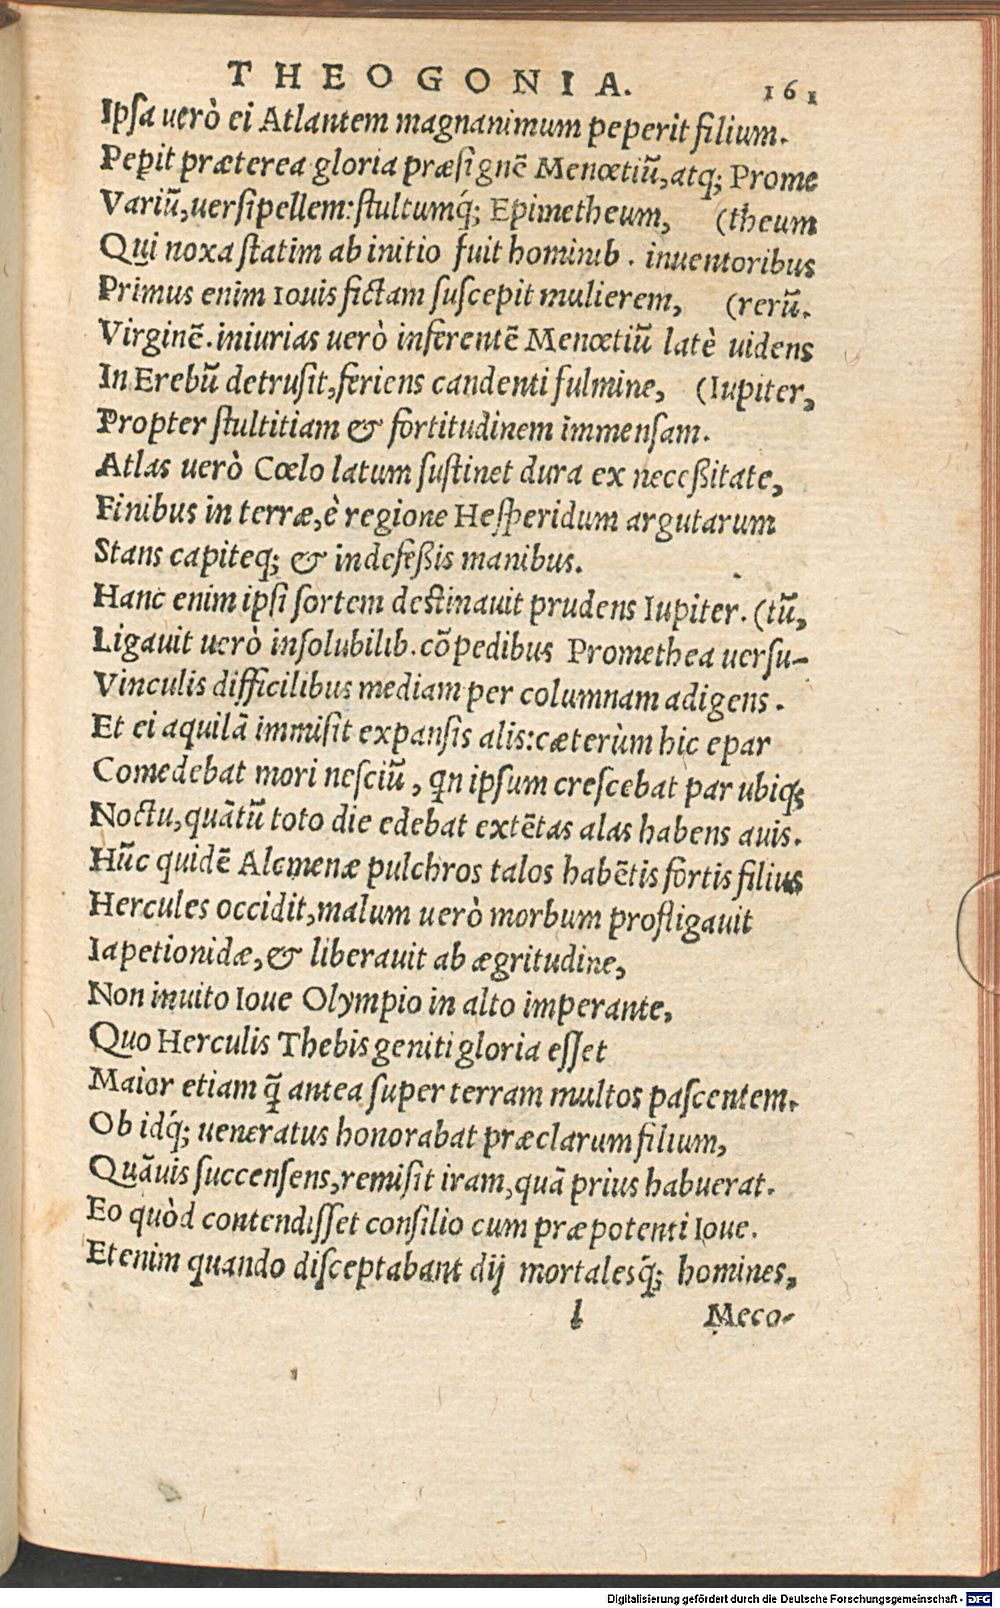 THEOGONIA. 161
Ipsa uerò ei Atlantem magnanimum peperit filium.
Peꝑit præterea gloria præsignē Menœtiū, atq; Prome
Variū, uersipellem: stultumq́; Epimetheum, (theum
Qui noxa statim ab initio fuit hominib. inuentoribus
Primus enim Iouis fictam suscepit mulierem, (rerū.
Virginē. iniurias uerò inferentē Menœtiū latè uidens
In Erebū detrusit, feriens candenti fulmine, (Iupiter,
Propter stultitiam & fortitudinem immensam.
Atlas uerò Cœlo latum sustinet dura ex neceßitate,
Finibus in terræ, è regione Hesperidum argutarum
Stans capiteq; & indefeßis manibus.
Hanc enim ipsi sortem destinauit prudens Iupiter. (tū,
Ligauit uerò insolubilib. cōpedibus Promethea uersu-
Vinculis difficilibus mediam per columnam adigens.
Et ei aquilā immisit expansis alis: cæterùm hic epar
Comedebat mori nesciū, qn ipsum crescebat par ubiq;
Noctu, quātū toto die edebat extētas alas habens auis.
Hūc quidē Alcmenæ pulchros talos habētis fortis filius
Hercules occidit, malum uerò morbum profligauit
Iapetionidæ, & liberauit ab ægritudine,
Non inuito Ioue Olympio in alto imperante,
Quo Herculis Thebis geniti gloria esset
Maior etiam q̄ antea super terram multos pascentem.
Ob idq́; ueneratus honorabat præclarum filium,
Quāuis succensens, remisit iram, quā prius habuerat.
Eo quòd contendisset consilio cum præpotenti Ioue.
Etenim quando disceptabant dij mortalesq́; homines,
l Meco-
Digitalisierung gefördert durch die Deutsche Forschungsgemeinschaft - DFG